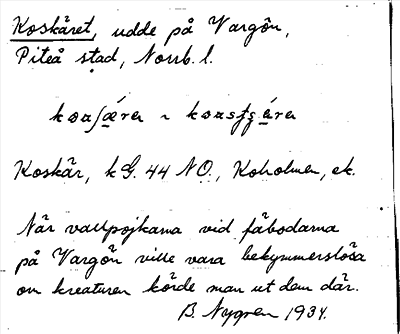 Koskäret, udde på Vargön,
Piteå stad, Norrb. l.
Koskär, kG. 44 NO., Koholmen, ek.
När vallpojkarna vid fäbodarna
på Vargön ville vara bekymmerslösa
om kreaturen körde man ut dem där.
B. Nygren 1934.